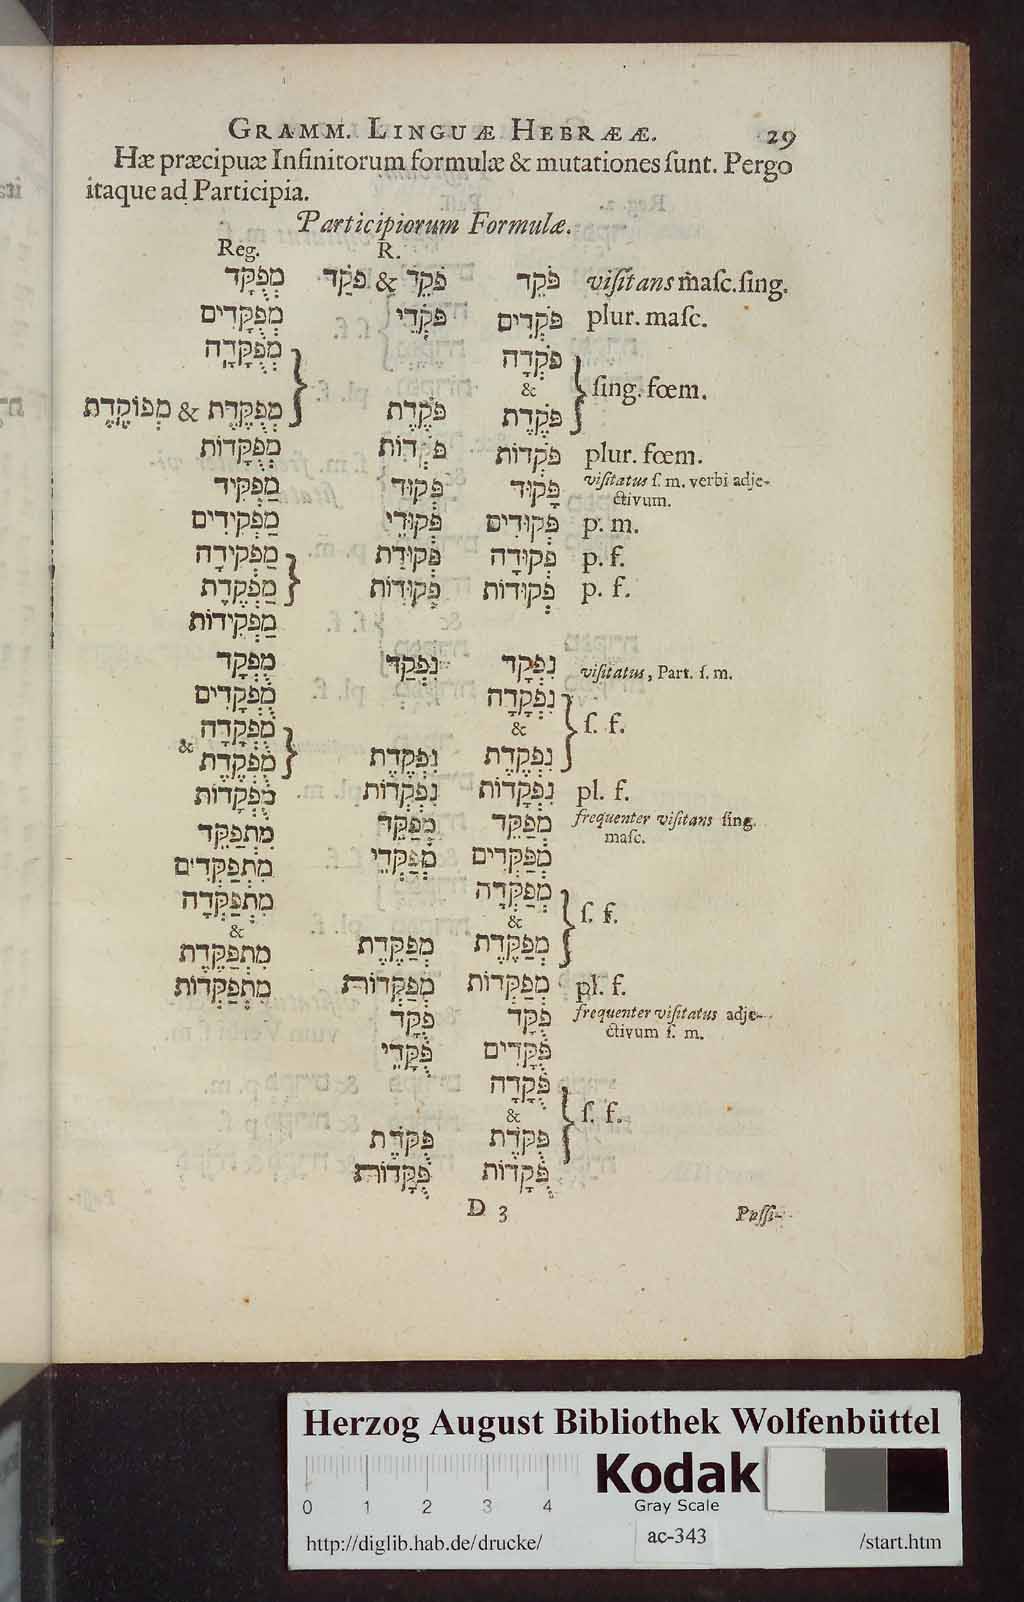 GRAMM. LINGUÆ HEBRÆÆ. 29
Hæ præcipuæ Infinitorum formulæ & mutationes ſunt. Pergo
itaque ad Participia.
Participiorum Formulæ.
Reg. R.
viſitans maſc. ſing. פֹּקֵד פֹּקֵד & פֹּקַד מְפֻקָּד
plur. maſc. פֹּקְדִים פֹּקְדֵי מְפֻקָּדִים
פֹּקְדָה מְפֻקָּדָה
& ſing. fœm.
פֹּקֶדֶת פֹּקֶדֶת מְפֻקֶּדֶת & מְפוֹקֶדֶת
plur. fœm. פֹּקְדוֹת פֹּקְדוֹת מְפֻקָּדוֹת
viſitatus ſ. m. verbi adje- פָּקוּד פְּקוּד מַפְקִיד
ctivum.
p. m. פְּקוּדִים פְּקוּדֵי מַפְקִידִים
p. f. פְּקוּדָה פְּקוּדַת מַפְקִידָה
p. f. פְּקוּדוֹת פְּקוּדוֹת מַפְקֶדֶת
מַפְקִידוֹת
viſitatus, Part. ſ. m. נִפְקָד נִפְקַד מֻפְקָד
נִפְקָדָה מֻפְקָדִים
& ſ. f. מֻפְקָדָה
&
נִפְקֶדֶת נִפְקֶדֶת מֻפְקֶדֶת
pl. f. נִפְקָדוֹת נִפְקְדוֹת מֻפְקָדוֹת
frequenter viſitans ſing. מְפַקֵּד מְפַקֵּד מִתְפַּקֵּד
maſc.
מְפַקְּדִים מְפַקְּדֵי מִתְפַּקְּדִים
מְפַקְּדָה מִתְפַּקְּדָה
& ſ. f. &
מְפַקֶּדֶת מְפַקֶּדֶת מִתְפַּקֶּדֶת
pl. f. מְפַקְּדוֹת מְפַקְּדוֹת מִתְפַּקְּדוֹת
frequenter viſitatus adje- פֻּקָּד פֻּקָּד
ctivum ſ. m.
פֻּקָּדִים פֻּקָּדֵי
פֻּקָּדָה
& ſ. f.
פֻּקֶּדֶת פֻּקֶּדֶת
פֻּקָּדוֹת פֻּקָּדוֹת
D 3 Paſſi-
Herzog August Bibliothek Wolfenbüttel
0 1 2 3 4
Kodak
Gray Scale
http://diglib.hab.de/drucke/ ac-343 /start.htm